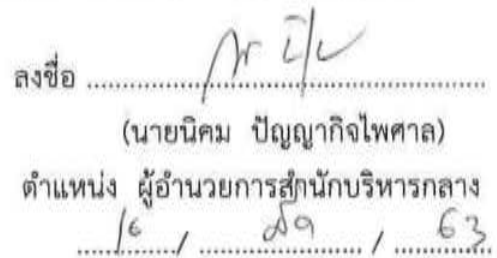 ลงชื่อ ........................................
(นายนิคม ปัญญากิจไพศาล)
ตำแหน่ง ผู้อำนวยการสำนักบริหารกลาง
16 / / 63